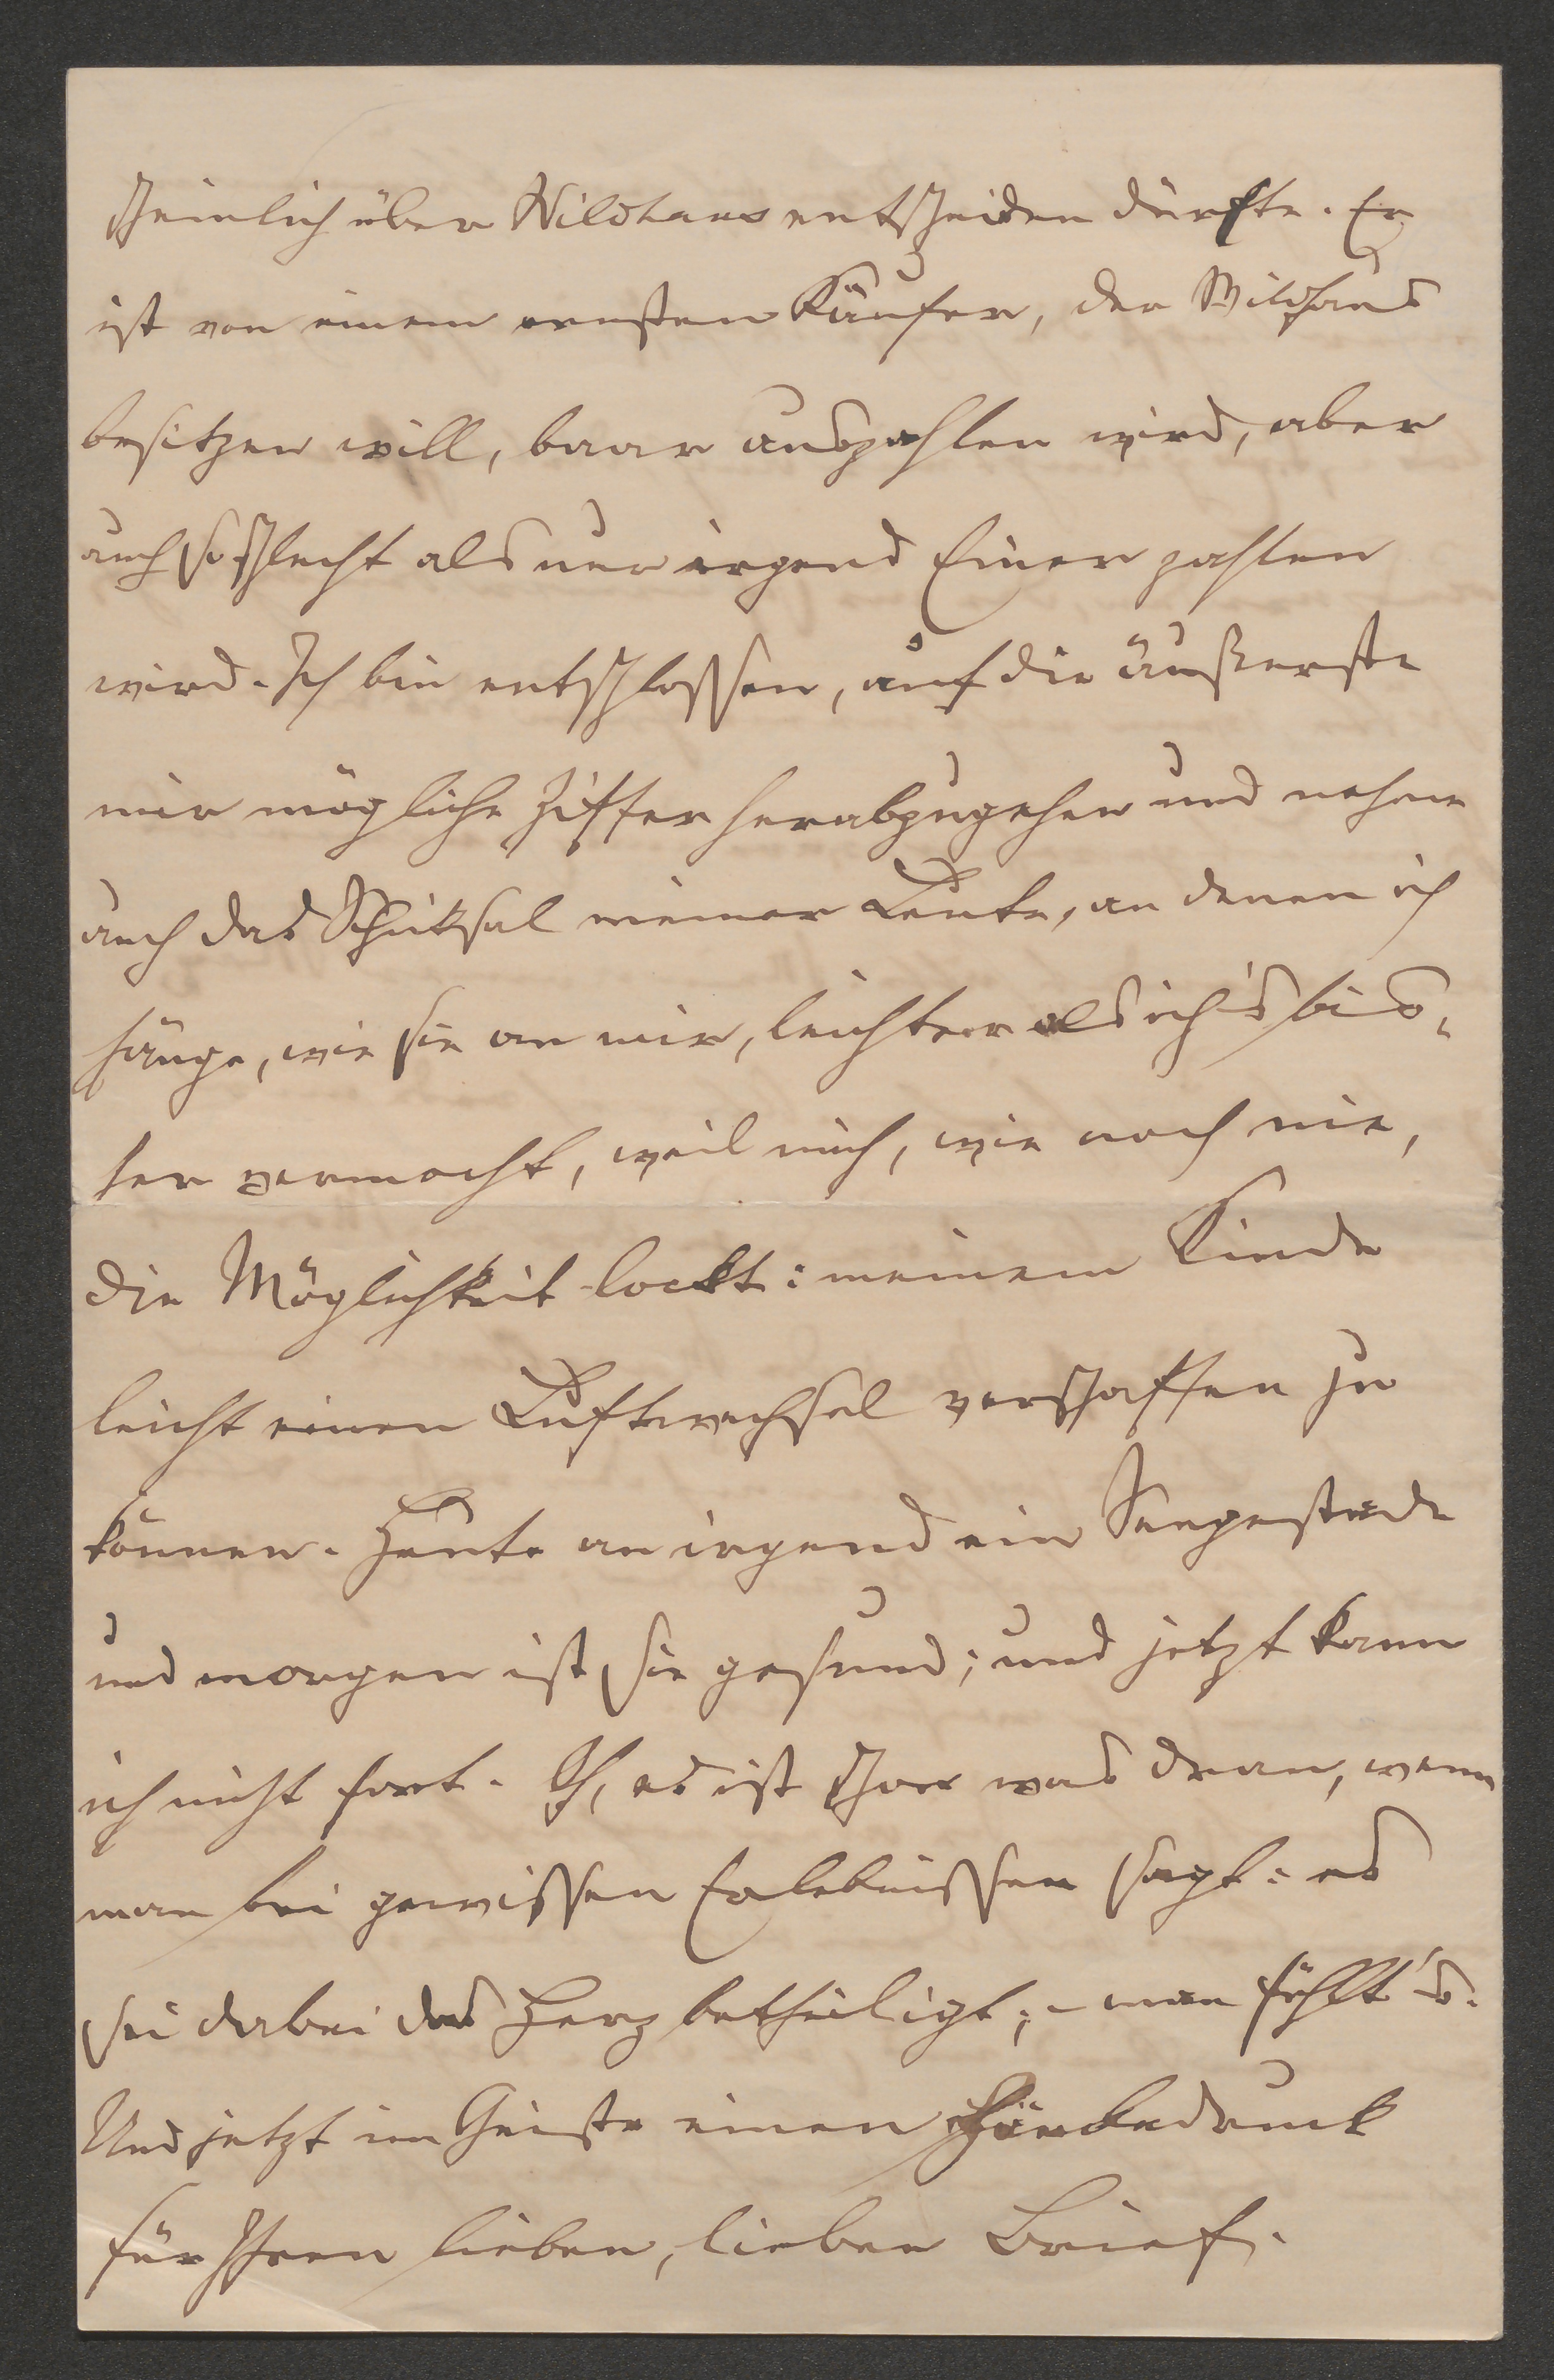 scheinlich über Wildhaus entscheiden dürfte. Er
ist von einem ernsten Käufer, der Wildhaus
besitzen will, baar auszahlen wird, aber
auch so schlecht als nur irgend Einer zahlen
wird. Ich bin entschlossen, auf die äußerste
mir mögliche Ziffer herabzugehen und nehme
auch das Schicksal meiner Leute, an denen ich
hänge, wie sie an mir, leichter als ich's bis-
her vermocht, weil mich, wie noch nie,
die Möglichkeit lockt: meinem Kinde
leicht einen Luftwechsel verschaffen zu
können. Heute an irgend ein Seegestade
und morgen ist sie gesund; und jetzt kann
ich nicht fort. Oh, es ist schon was dran, wenn
man bei gewissen Erlebnissen sagt: es
sei dabei das Herz betheiligt; – man fühlt's.
Und jetzt im Geiste einen Händedruck
für Ihren lieben, lieben Brief.